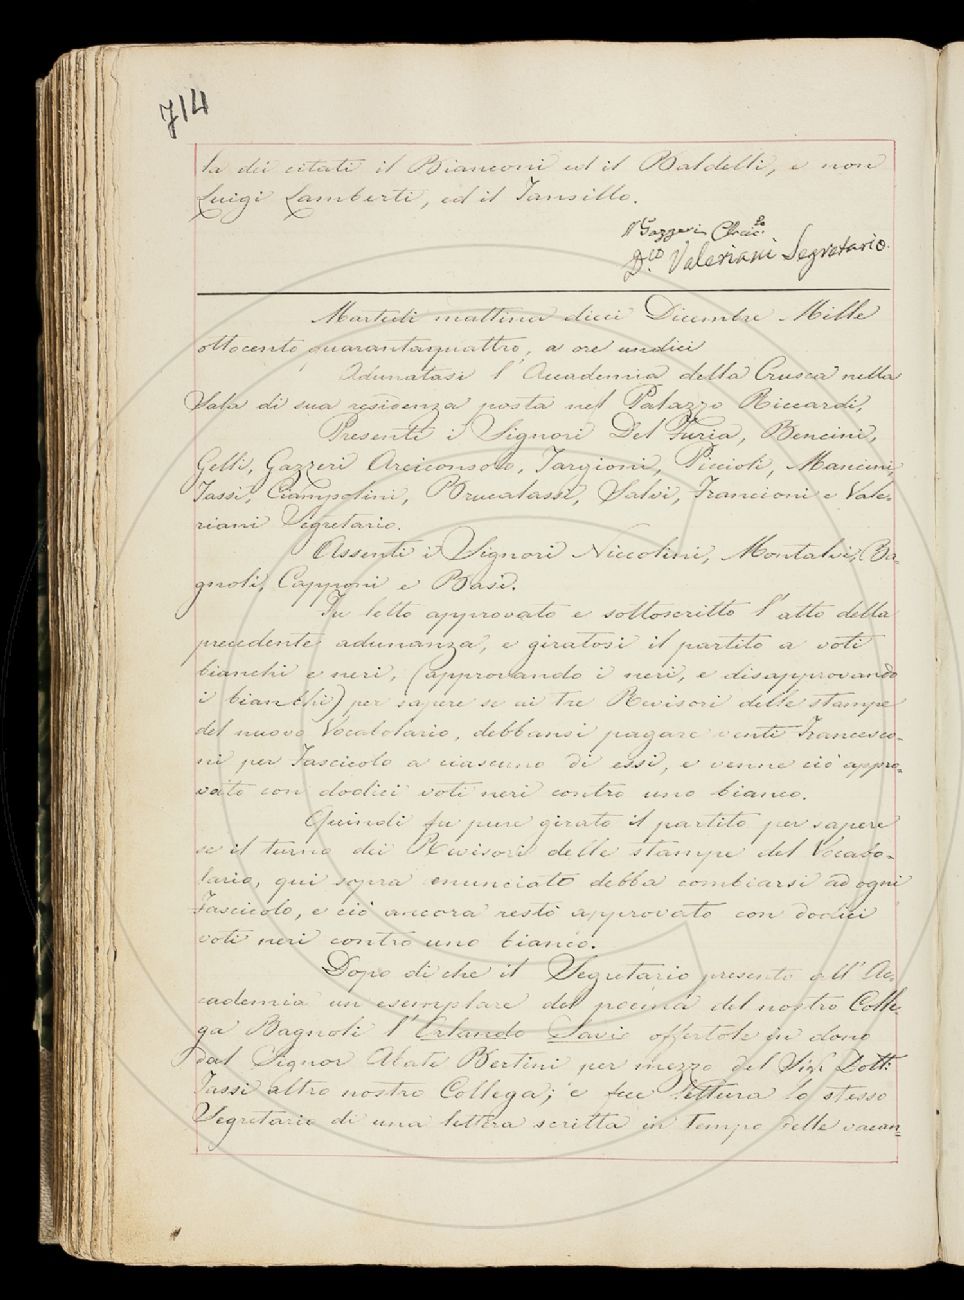 714
la dei citati il Bianconi ed il Baldelli, e non
Luigi Lamberti, ed il Tansillo.
Gazzeri
D.co Valeriani Segretario
Martedi mattina dieci Dicembre Mille
ottocento quarantaquattro, a ore undici
Adunatasi l'Accademia della Crusca nella
Sala di sua residenza posta nel Palazzo Riccardi,
Presenti i Signori Del Furia, Bencini,
Gelli, Gazzeri Arciconsolo, Targioni, Piccioli, Mancini,
Tassi, Ciampolini, Brucalassi, Salvi, Francioni e Vale-
riani Segretario.
Assenti i Signori Niccolini, Montalvi, Ba-
gnoli, Capponi e Basi.
Fu letto approvato e sottoscritto l'atto della
precedente adunanza, e giratosi il partito a voti
bianchi e neri, (approvando i neri, e disapprovando
i bianchi) per sapere se ai tre Revisori delle stampe
del nuovo Vocabolario, debbansi pagare venti Francesco-
ni per Fascicolo a ciascuno di essi, e venne ciò appro-
vato con dodici voti neri contro uno bianco.
Quindi fu pure girato il partito per sapere
se il turno dei Revisori delle stampe del Vocabo-
lario, qui sopra enunciato debba cambiarsi ad ogni
Fascicolo, e ciò ancora restò approvato con dodici
voti neri contro uno bianco.
Dopo di che il Segretario presentò all'Ac-
cademia un esemplare del poema del nostro Colle-
ga Bagnoli l'Orlando Savio offertole in dono
dal Signor Abate Bertini per mezzo del Sig.r Dott.
Tassi altro nostro Collega; e fece lettura lo stesso
Segretario di una lettera scritta in tempo delle vacan-